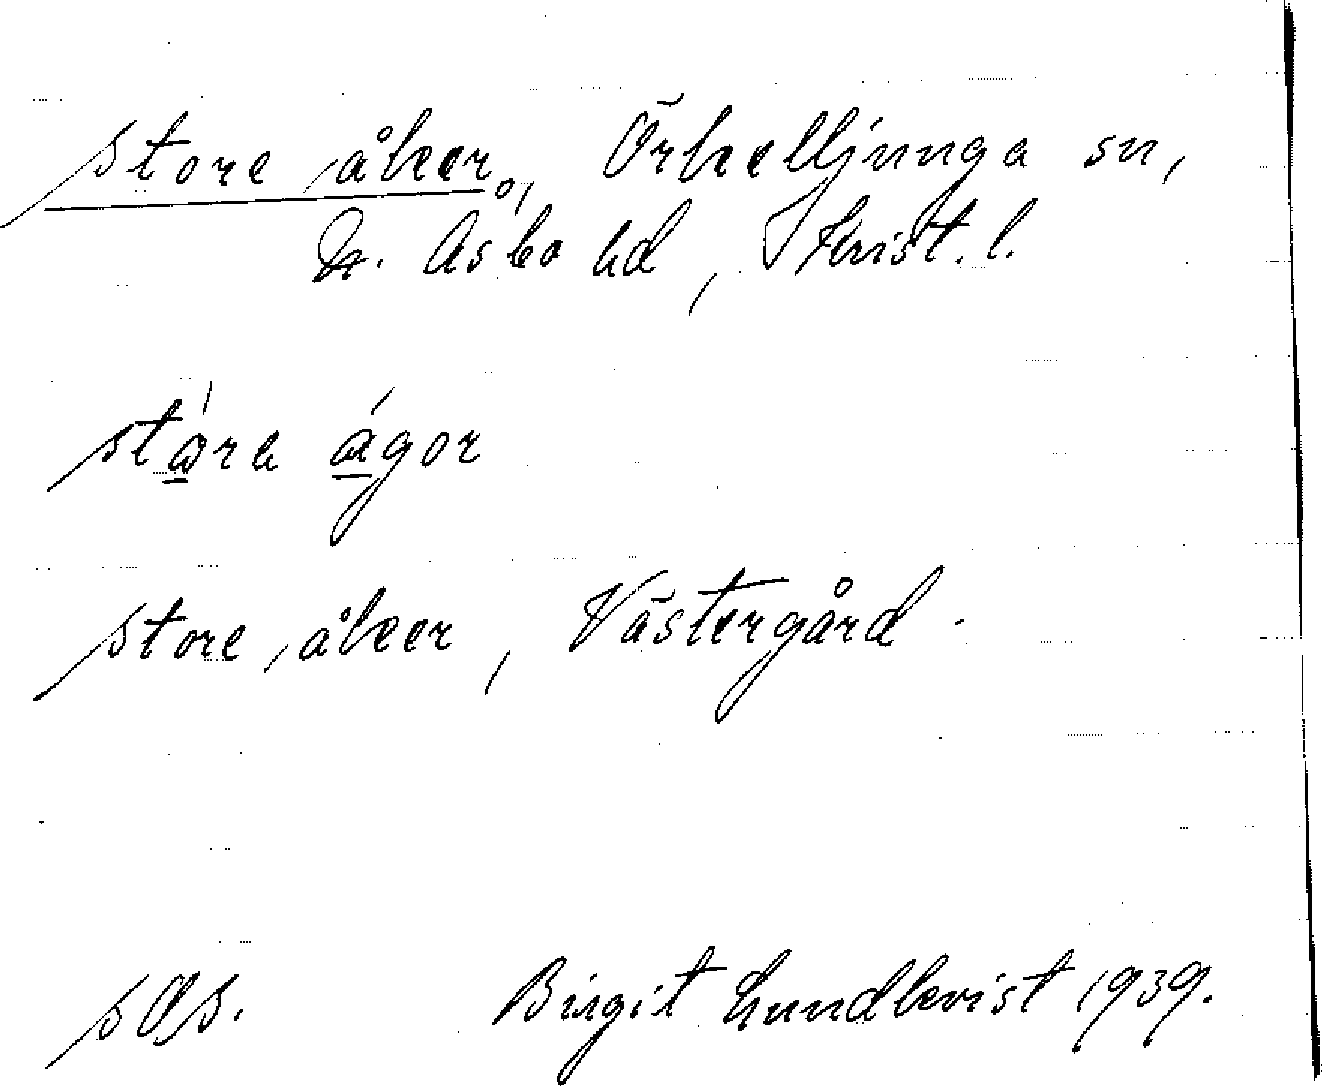 store åker, Örkelljunga sn,
N. Åsbo hd, Krist. l.
store åker, Västergård.
Birgit Lundkvist 1939.